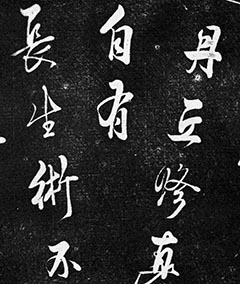 丹丘修真
自有
長生術不